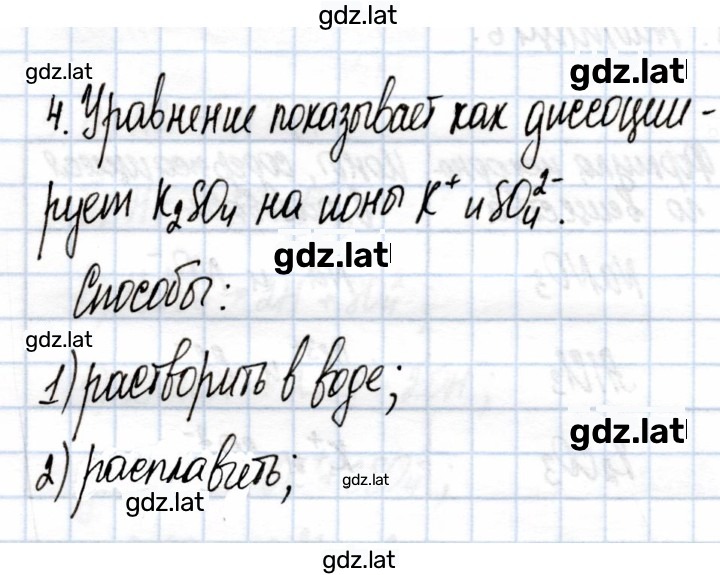 gdz.lat
gdz.lat
gdz.lat
4. Уравнение показывает как диссоции-
рует K₂SO₄ на ионы K⁺ и SO₄²⁻.
gdz.lat
Способы:
gdz.lat
1) растворить в воде;
gdz.lat
2) расплавить;
gdz.lat
gdz.lat
gdz.lat